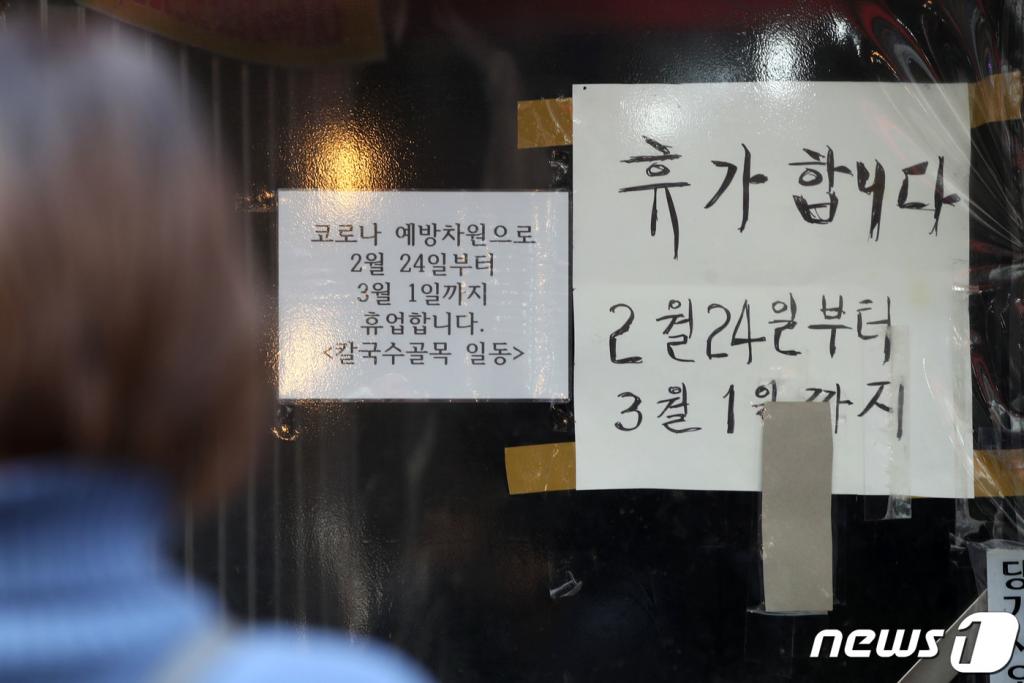 코로나 예방차원으로
2월 24일부터
3월 1일까지
휴업합니다.
<칼국수골목 일동>
휴가합니다
2월24일부터
3월 1일까지
당
news1